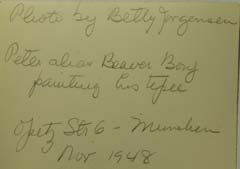 Photo by Betty Jorgensen
Peter alias Beaver Boy
painting his tepee
Opetz Str 6 - Munchen
Nov 1948